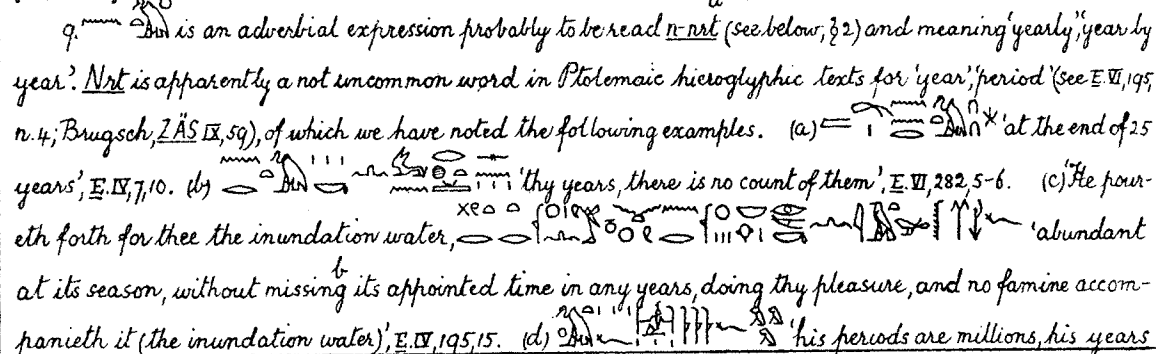 q. is an adverbial expression probably to be read n-nrt (see below, §2) and meaning 'yearly', 'year by
year'. Nrt is apparently a not uncommon word in Ptolemaic hieroglyphic texts for 'year', 'period' (see E. VI, 195,
n. 4; Brugsch, ZÄS IX, 59), of which we have noted the following examples. (a) 'at the end of 25
years', E. IV, 7, 10. (b) 'thy years, there is no count of them', E. VI, 282, 5-6. (c) 'He pour-
eth forth for thee the inundation water, 'abundant
at its season, without missing b its appointed time in any years, doing thy pleasure, and no famine accom-
panieth it (the inundation water)', E. IV, 195, 15. (d) 'his periods are millions, his years